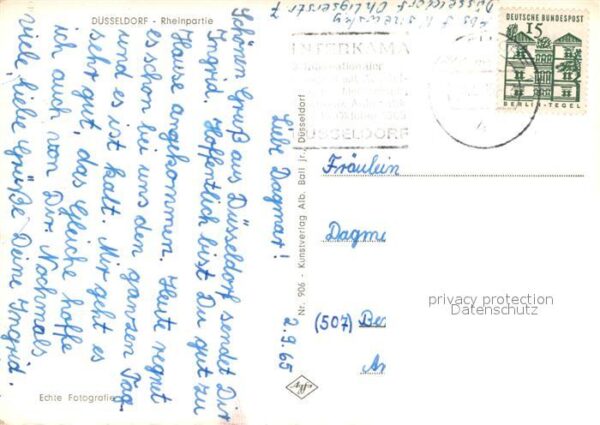 DÜSSELDORF - Rheinpartie
2.9.65
Liebe Dagmar!
Schönen Gruß aus Düsseldorf sendet Dir
Ingrid. Hoffentlich bist Du gut zu
Hause angekommen. Heute regnet
es schon bei uns den ganzen Tag
und es ist kalt. Mir geht es
sehr gut, das Gleiche hoffe
ich auch von Dir. Nochmals
viele, liebe Grüße Deine Ingrid.
Echte Fotografie
Nr. 906 - Kunstverlag Alb. Ball jr., Düsseldorf
Düsseldorf
INTERKAMA
DÜSSELDORF
DEUTSCHE BUNDESPOST
15
BERLIN-TEGEL
Fräulein
Dagma
(507) Be
privacy protection
Datenschutz